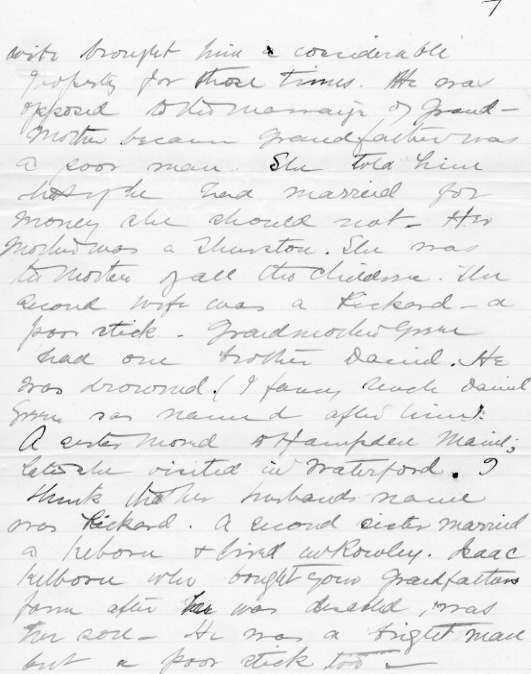 7
wife brought him a considerable
property for those times. He was
opposed to the marraige of Grand-
Mother because Grandfather was
a poor man. She told him
that if he had married for
money she should not - Her
Mother was a Thurston. She was
the Mother of all the children. The
second wife was a Rickard - a
poor stick - Grandmother Green
had one brother Daniel. He
was drowned. (I fancy Uncle Daniel
Green was named after him).
A sister Moved to Hampden Maine;
later she visited in Waterford. I
think that her husbands name
was Rickard. A second sister married
a Kilborn & lived in Rowley. Isaac
Kilborn who bought your Grandfathers
farm after he was disabled, was
her son - He was a bright man
but a poor stick too -